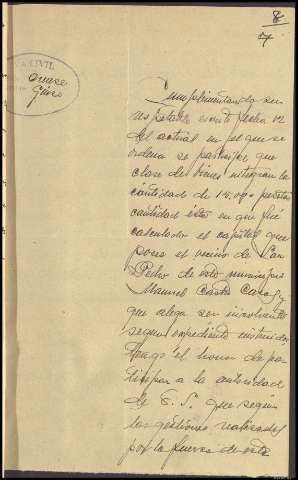 8
CIVIL
Cumplimentando su
respetable escrito fecha 12
del actual en el que se
ordena se participe que
clase de bienes integran la
cantidad de 15.000 pesetas
cantidad esta en que fué
calculado el capital que
posee el vecino de San
Pedro de este municipio
Manuel Castro
que alega ser insolvente
segun expediente instruido,
tengo el honor de par-
ticipar a la autoridad
de E. S. que según
las gestiones realizadas
por la fuerza de este